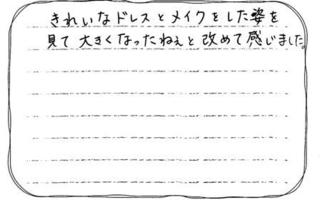 きれいなドレスとメイクをした姿を
見て大きくなったねぇと改めて感じました。